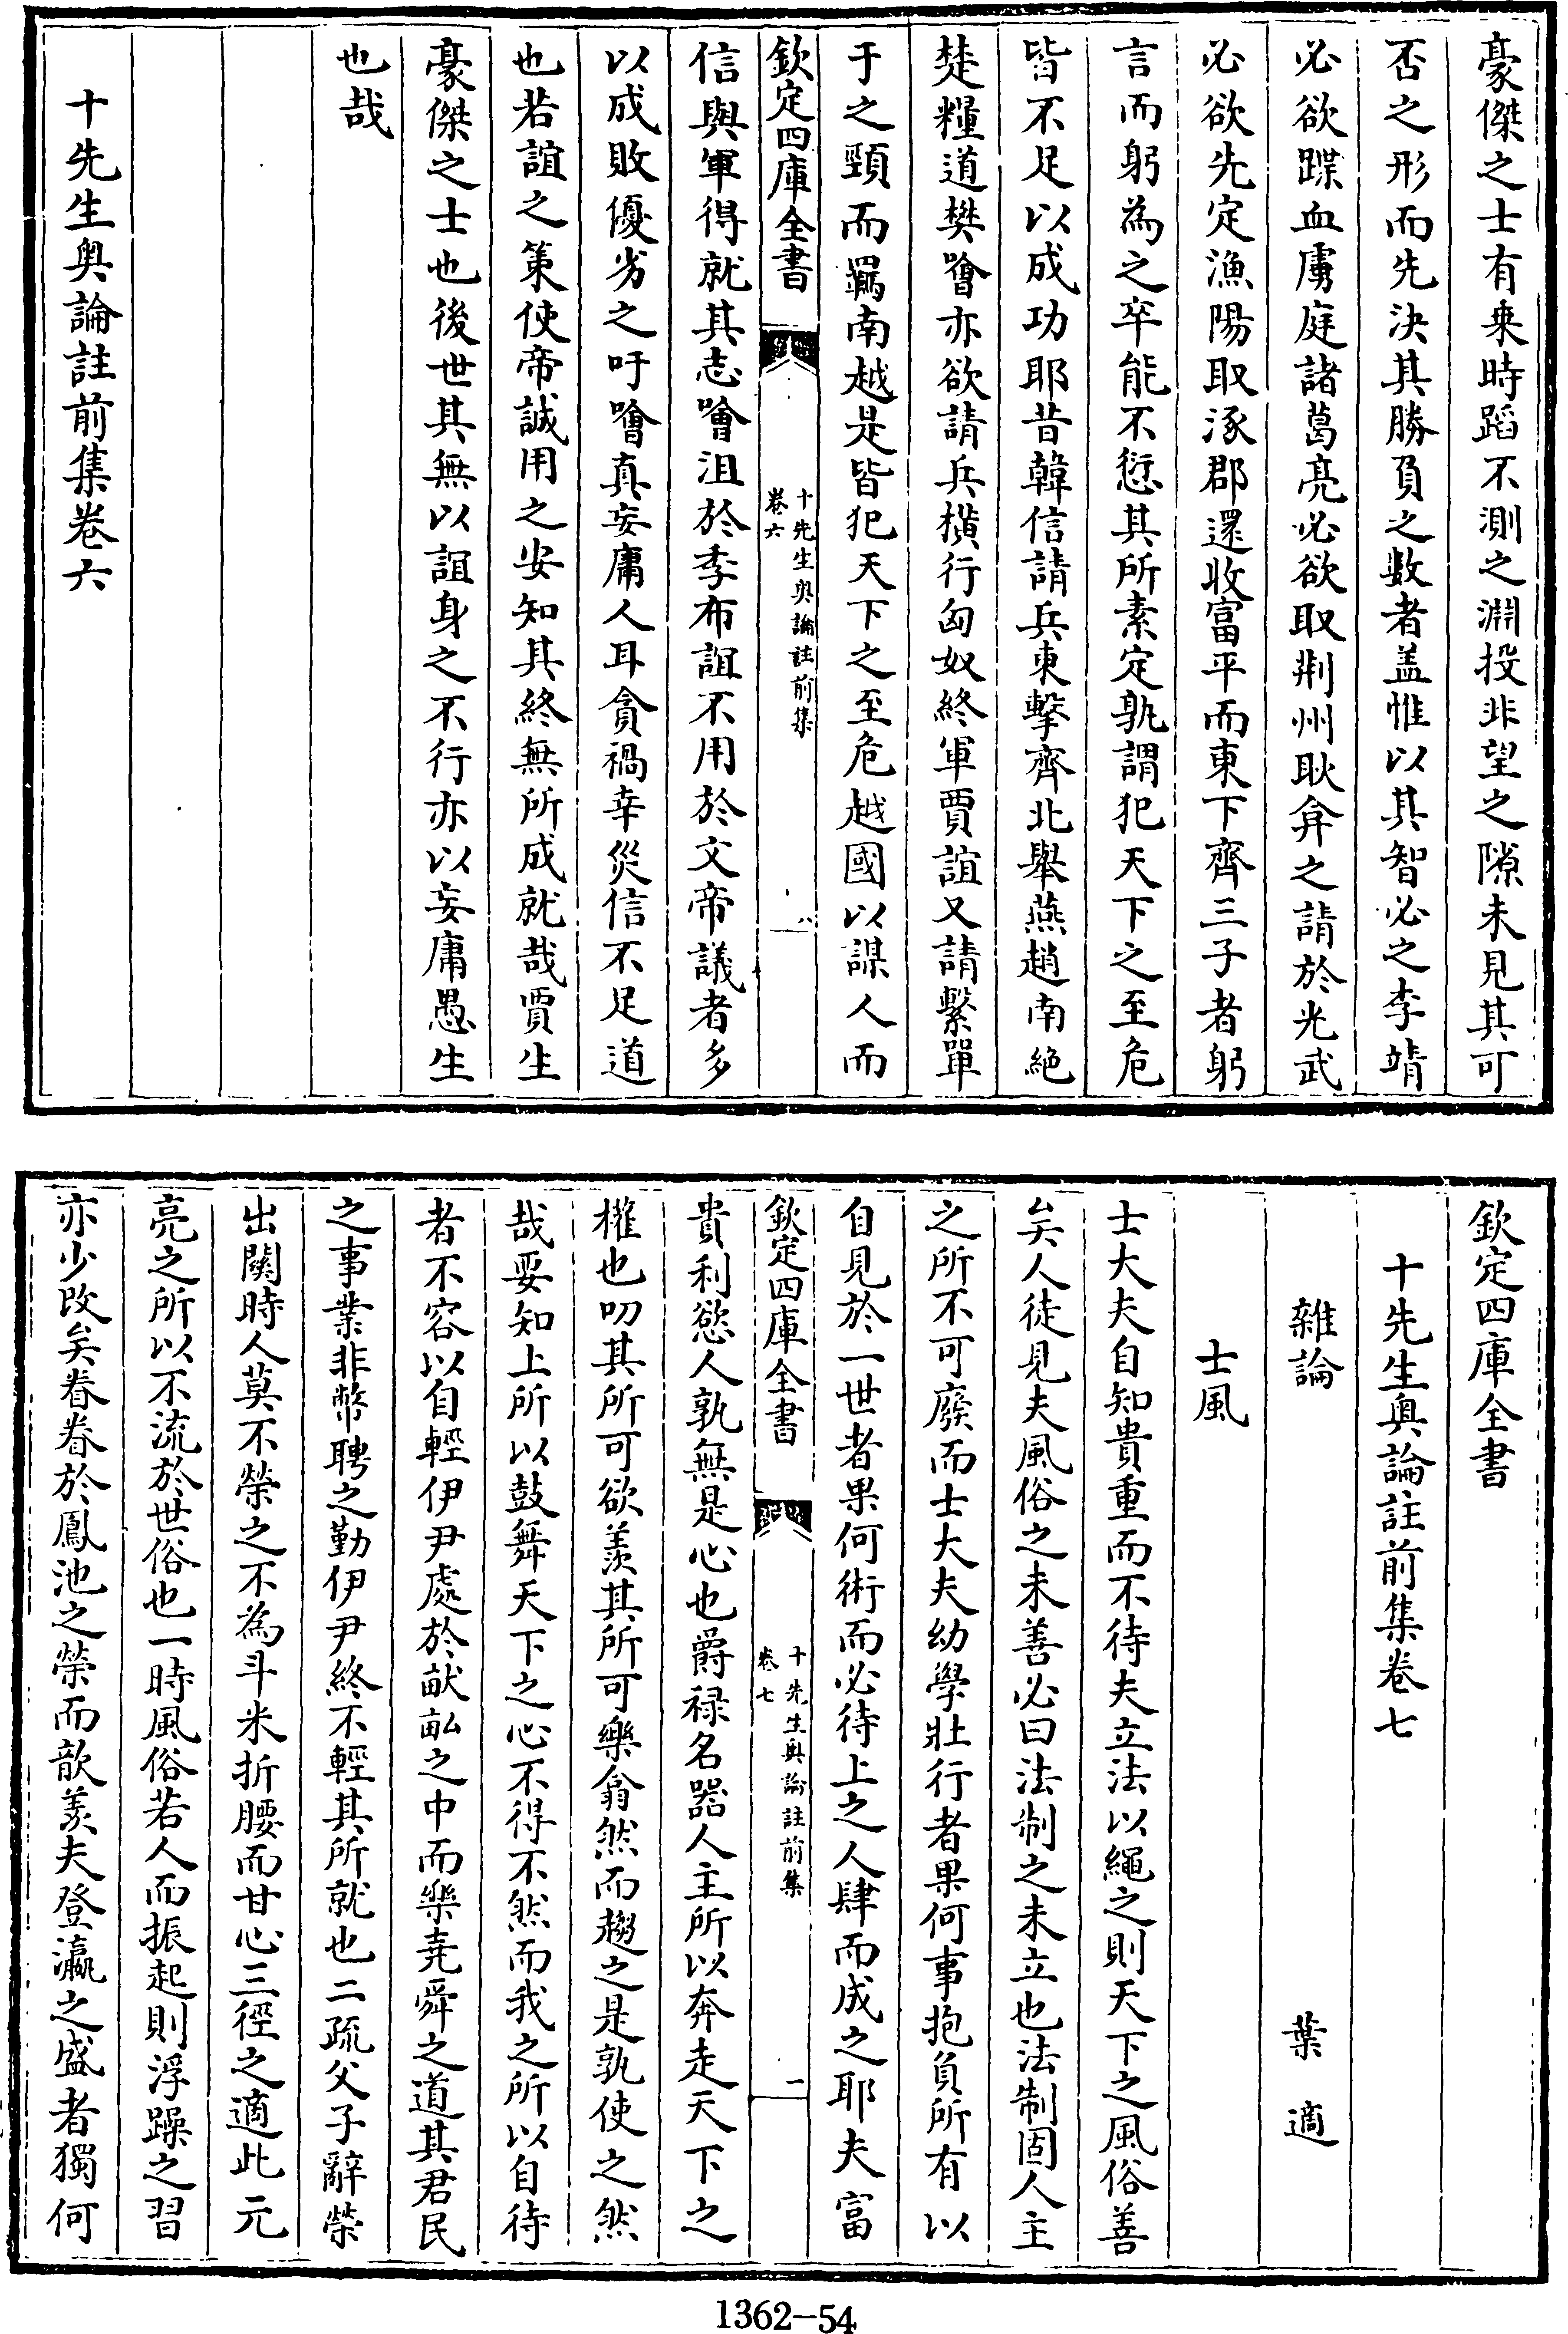 豪傑之士有乗時蹈不測之淵投非望之隙未見其可
否之形而先決其勝負之數者盖惟以其智必之李靖
必欲蹀血虜庭諸葛亮必欲取荆州耿弇之請於光武
必欲先定漁陽取涿郡還收富平而東下齊三子者躬
言而躬為之卒能不愆其所素定孰謂犯天下之至危
皆不足以成功耶昔韓信請兵東擊齊北舉燕趙南絶
楚糧道樊噲亦欲請兵橫行匈奴終軍賈誼又請繫單
于之頸而羈南越是皆犯天下之至危越國以謀人而
欽定四庫全書
十先生奥論註前集
卷六
八
信與軍得就其志噲沮於季布誼不用於文帝議者多
以成敗優劣之吁噲真妄庸人耳貪禍幸災信不足道
也若誼之策使帝誠用之安知其終無所成就哉賈生
豪傑之士也後世其無以誼身之不行亦以妄庸愚生
也哉
十先生奥論註前集卷六
欽定四庫全書
十先生奥論註前集卷七
雜論
葉適
士風
士大夫自知貴重而不待夫立法以繩之則天下之風俗善
矣人徒見夫風俗之未善必曰法制之未立也法制固人主
之所不可廢而士大夫幼學壯行者果何事抱負所有以
自見於一世者果何術而必待上之人肆而成之耶夫富
欽定四庫全書
十先生奥論註前集
卷七
一
貴利慾人孰無是心也爵禄名器人主所以奔走天下之
權也叨其所可欲羨其所可樂翕然而趨之是孰使之然
哉要知上所以鼓舞天下之心不得不然而我之所以自待
者不容以自輕伊尹處於畎畝之中而樂堯舜之道其君民
之事業非幣聘之勤伊尹終不輕其所就也二疏父子辭榮
出關時人莫不榮之不為斗米折腰而甘心三徑之適此元
亮之所以不流於世俗也一時風俗若人而振起則浮躁之習
亦少改矣眷眷於鳳池之榮而歆羨夫登瀛之盛者獨何
1362-54